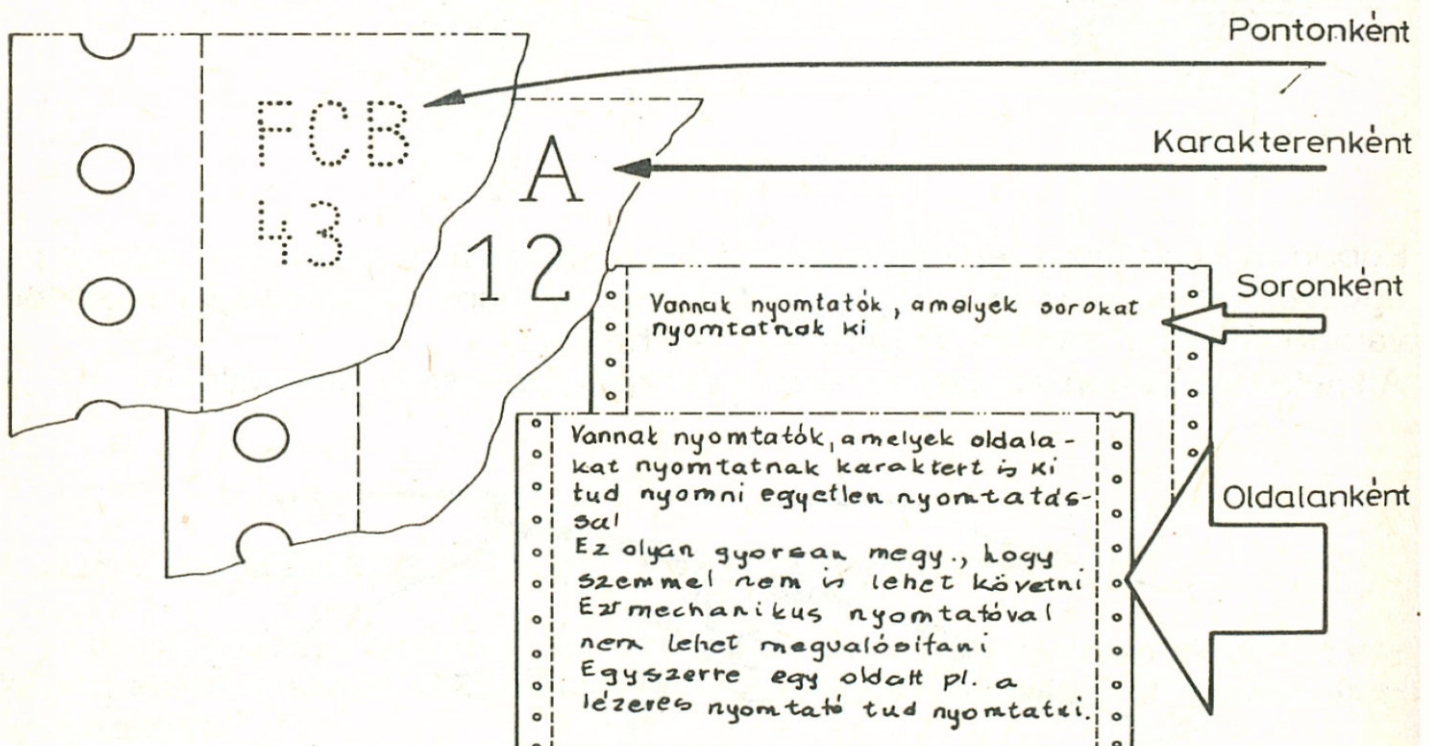 Pontonként
FCB
43
Karakterenként
A
12
Soronként
Vannak nyomtatók, amelyek sorokat
nyomtatnak ki
Oldalanként
Vannak nyomtatók, amelyek oldala-
kat nyomtatnak karaktert is ki
tud nyomni egyetlen nyomtatás-
sal
Ez olyan gyorsan megy., hogy
szemmel nem is lehet követni
Ezt mechanikus nyomtatóval
nem lehet megvalósítani
Egyszerre egy oldalt pl. a
lézeres nyomtató tud nyomtatni.